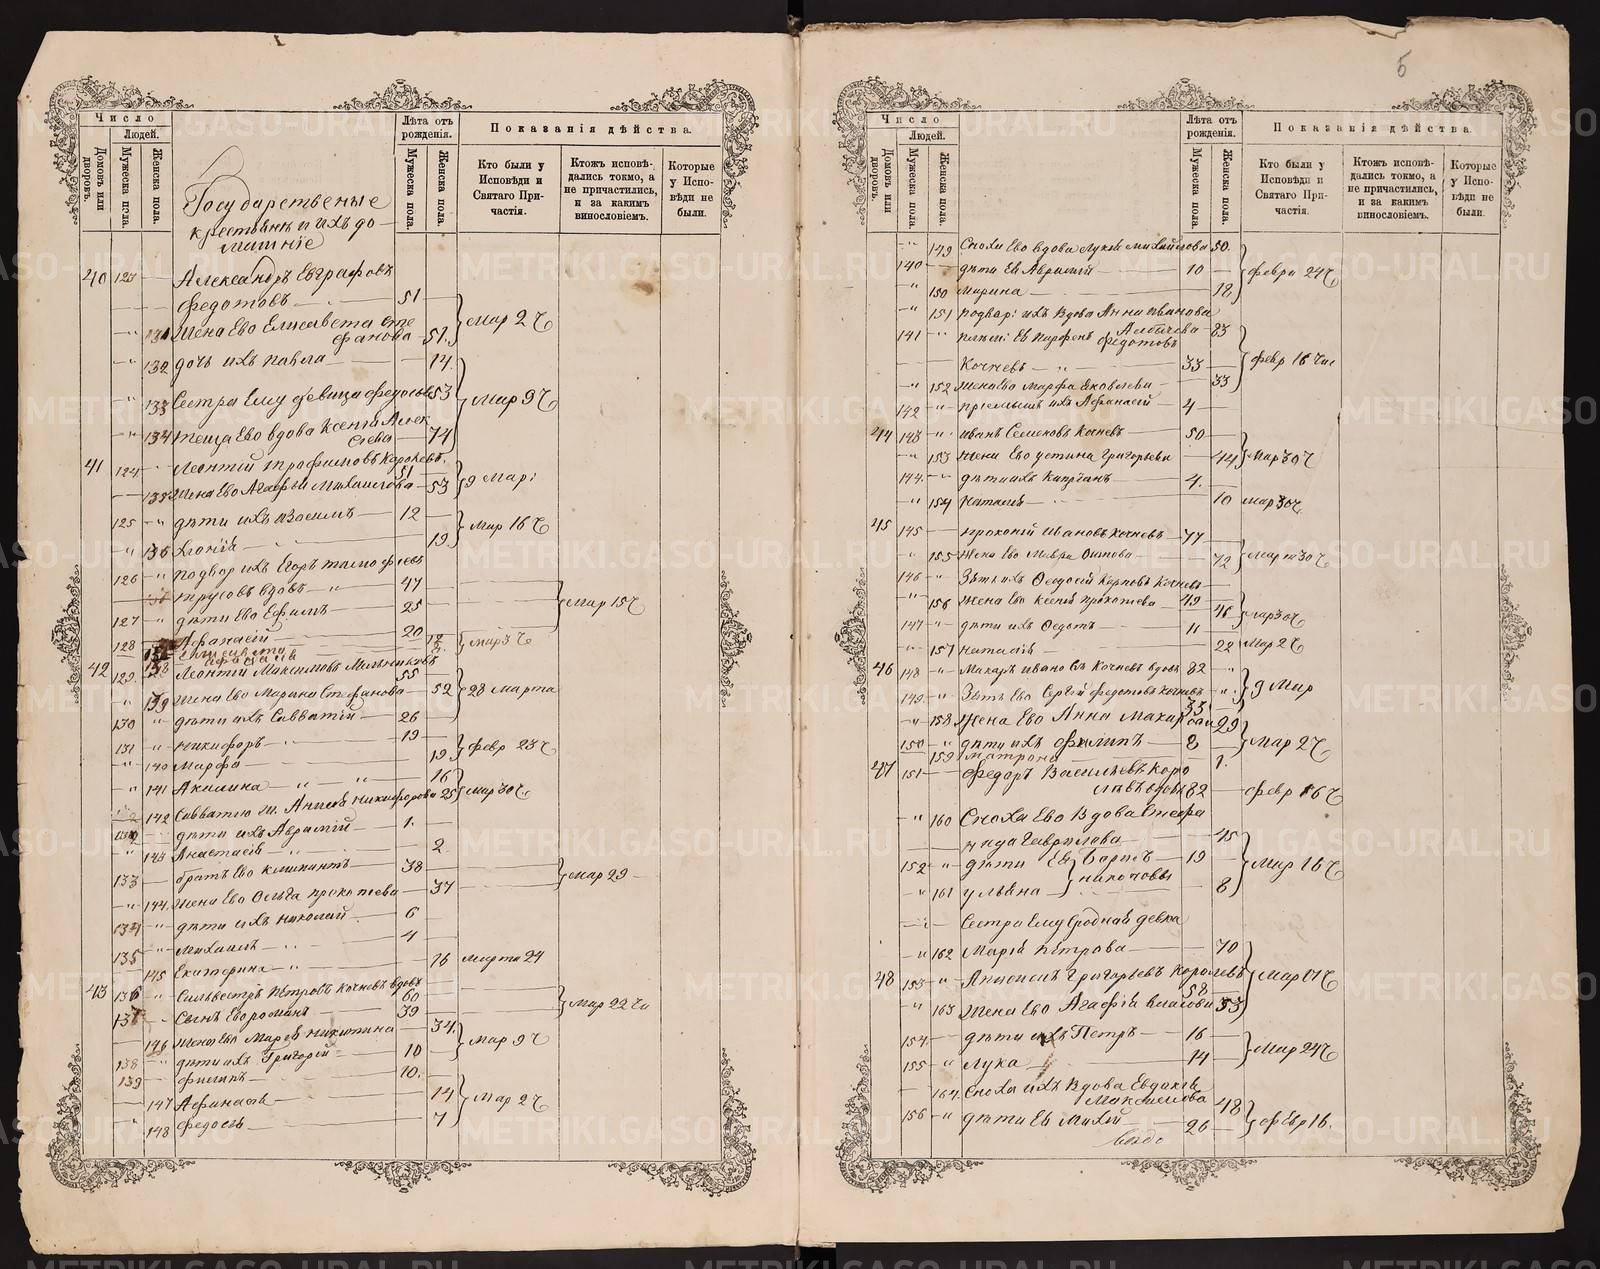 Число
Людей.
Домовъ или дворовъ.
Мужеска пола.
Женска пола.
Лѣта отъ рожденія.
Мужеска пола.
Женска пола.
Показанія дѣйства.
Кто были у Исповѣди и Святаго Причастія.
Ктожъ исповѣдались токмо, а не причастились, и за какимъ винословіемъ.
Которые у Исповѣди не были.
Государственые
крестьяни и ихъ до-
машніе
40 123 Александръ Евграфовъ
Федотовъ 51
Жена Ево Елисавета Сте
фанова 51. Мар 2 Ч
132 дочь ихъ Павла 14.
133 Сестра Ему девица Федосья 53 Мар 9 Ч
134 теща Ево вдова Ксенія Алек
сеева 74
41 124 Леонтій Трофимовъ Королевъ. 51
135 Жена Ево Агафья Михайлова 53 9 Мар:
125 дѣти ихъ 12
136 Хіонія 19 Мар 16 Ч
126 подвор ихъ Егоръ Тимофѣевъ
Трусовъ вдовъ 47
127 дѣти Ево Ефимъ 25 Мар 15 Ч
128 Афанасій 20
Мар 3 Ч
42 129. Леонтій Максимовъ Мельниковъ 55
139 Жена Ево Марина Стефанова 52 28 Марта
130 дѣти ихъ Савватій 26
131 Никифоръ 19
140 Марфа 19 Февр 23 Ч
141 Акилина 16
142 Савватію ж. Анисія Никифорова 25 Мар 30 Ч
132 дѣти ихъ Аврамій 1.
143 Анастасія 2
133 братъ Ево Климантъ 38 Мар 29
144 Жена Ево Ольга Прокопьева 37
134 дѣти ихъ Николай 6
135 Михаилъ 4
145 Екатерина 16 Марта 24
43 136 Сильвестръ Петровъ Кочневъ вдовъ 60
137 Сынъ Ево Романъ 39 Мар 22 Чи
146 Жена Ево Марья Никитина 34. Мар 9 Ч
138 дѣти ихъ Григорій 10
139 Филипъ 10.
147 Афинаса 14 Мар 2 Ч
148 Федосья 7
5
Число
Людей.
Домовъ или дворовъ.
Мужеска пола.
Женска пола.
Лѣта отъ рожденія.
Мужеска пола.
Женска пола.
Показанія дѣйства.
Кто были у Исповѣди и Святаго Причастія.
Ктожъ исповѣдались токмо, а не причастились, и за какимъ винословіемъ.
Которые у Исповѣди не были.
149 Сноха Ево вдова Лукія Михайлова 50.
140 дѣти Ея Аврамій 10 Февра 24 Ч
150 Марина 18
151 подвор: ихъ вдова Анна Иванова
83
141 Ея Парфенъ Федотовъ
Кочневъ 33 Февр 16 Чи
152 Жена Ево Марфа Яковлева 33
142 пріемышъ ихъ Афанасій 4
44 143 Иванъ Семеновъ Кочневъ 50
153 Жена Ево Устина Григорьева 44 Мар 30 Ч
144. дѣти ихъ Капріянъ 4.
154 Наталія 10 Мар 30 Ч
45 145 Прокопій Ивановъ Кочневъ 77
155 Жена Ево Мавра Осипова 72 Март 30 Ч
146 Зять ихъ Феодосій Карповъ Кочневъ
49
156 Жена Ево Ксенія Прокопьева 46 Мар 30 Ч
147 дѣти ихъ Федотъ 11
157 Наталія 22 Мар 2 Ч
46 148 Макаръ Ивановъ Кочневъ вдовъ 82
149 Зять Ево Сергѣй Федотовъ Кочневъ 33 9 Мар
158 Жена Ево Анна Макарова 29
150 дѣти ихъ Филипъ 8 Мар 2 Ч
159 Матрона 1.
47 151 Федоръ Васильевъ Коро
левъ вдовъ 82 Февр 16 Ч
160 Сноха Ево вдова Стефа
нида Гаврилова 45
152 дѣти Ея Борисъ 19 Мар 16 Ч
161 Ульяна 8
Сестра Ему сродная девка
162 Марія Петрова 70
48 153 Григорьевъ Королевъ 58 Мар 17 Ч
163 Жена Ево Агафія Власова 53
154 дѣти ихъ Петръ 16
155 Лука 14 Мар 24 Ч
164 Сноха ихъ вдова Евдокія
Максимова 48
156 дѣти Ея 26 Февр 16.
METRIKI.GASO-URAL.RU